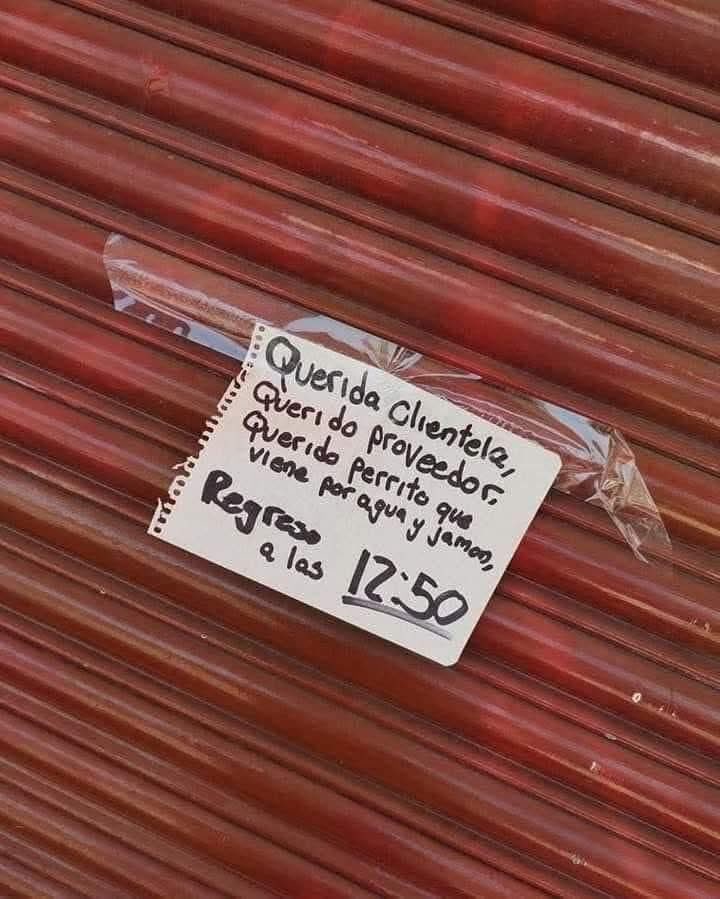 Querida Clientela,
Querido proveedor,
Querido perrito que
viene por agua y jamon,
Regreso
a las 12:50